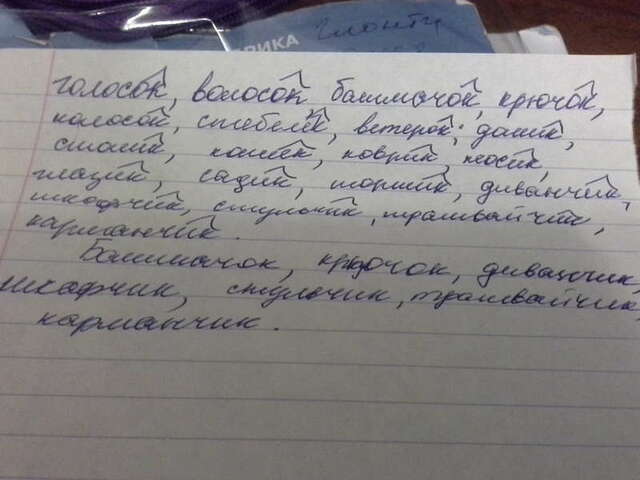 РИКА
голосок, волосок, башмачок, крючок,
колосок, стебелёк, ветерок; домик,
столик, конёк, коврик, носик,
садик, тортик, диванчик,
шкафчик, стульчик, трамвайчик,
карманчик.
Башмачок, крючок, диванчик,
шкафчик, стульчик, трамвайчик,
карманчик.